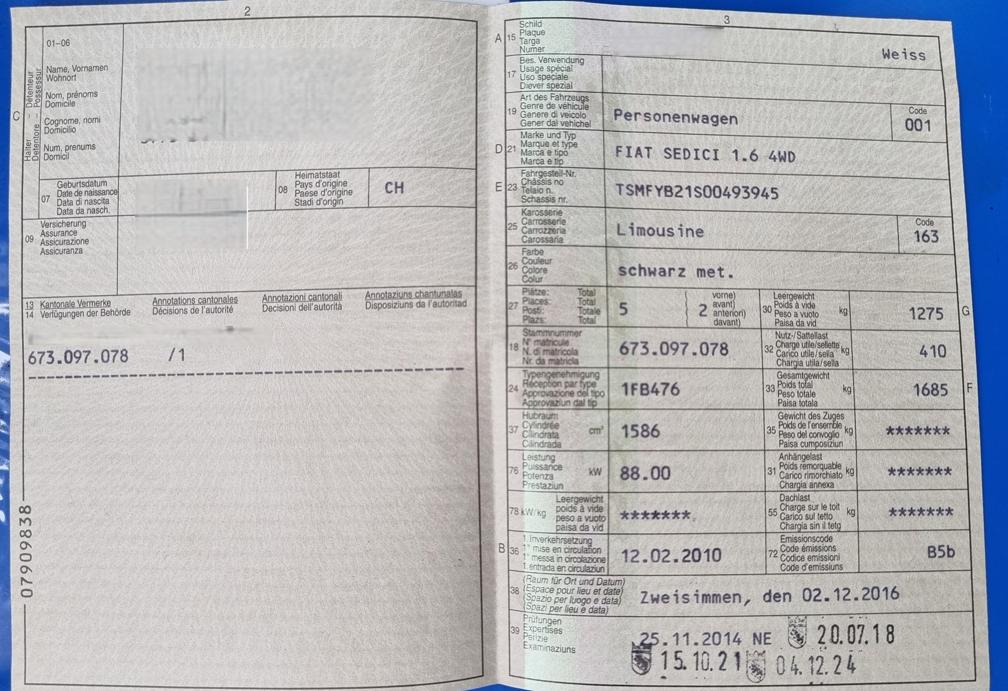 2
C
Halter Détenteur
Detentore Possessur
01-06
Name, Vornamen
Wohnort
Nom, prénoms
Domicile
Cognome, nomi
Domicilio
Num, prenums
Domicil
07
Geburtsdatum
Date de naissance
Data di nascita
Data da nasch.
08
Heimatstaat
Pays d'origine
Paese d'origine
Stadi d'origin
CH
09
Versicherung
Assurance
Assicurazione
Assicuranza
13 Kantonale Vermerke Annotations cantonales Annotazioni cantonali Annotaziuns chantunalas
14 Verfügungen der Behörde Décisions de l'autorité Decisioni dell'autorità Disposiziuns da l'autoritad
673.097.078 /1
07909838
3
A 15
Schild
Plaque
Targa
Numer
Weiss
17
Bes. Verwendung
Usage spécial
Uso speciale
Diever spezial
19
Art des Fahrzeugs
Genre de véhicule
Genere di veicolo
Gener dal vehichel
Personenwagen
Code
001
D 21
Marke und Typ
Marque et type
Marca e tipo
Marca e tip
FIAT SEDICI 1.6 4WD
E 23
Fahrgestell-Nr.
Châssis no
Telaio n.
Schassis nr.
TSMFYB21S00493945
25
Karosserie
Carrosserie
Carrozzeria
Carossaria
Limousine
Code
163
26
Farbe
Couleur
Colore
Colur
schwarz met.
27
Plätze: Total
Places: Total
Posti: Totale
Plazs: Total
5
2
vorne)
avant)
anteriori)
davant)
30
Leergewicht
Poids à vide
Peso a vuoto
Paisa da vid
kg
1275
G
18
Stammnummer
N° matricule
N. di matricola
Nr. da matricla
673.097.078
32
Nutz-/Sattellast
Charge utile/sellette
Carico utile/sella
Chargia utila/sella
kg
410
24
Typengenehmigung
Réception par type
Approvazione del tipo
Approvaziun dal tip
1FB476
33
Gesamtgewicht
Poids total
Peso totale
Paisa totala
kg
1685
F
37
Hubraum
Cylindrée
Cilindrata
Cilindrada
cm³
1586
35
Gewicht des Zuges
Poids de l'ensemble
Peso del convoglio
Paisa cumposiziun
kg
*******
76
Leistung
Puissance
Potenza
Prestaziun
kW
88.00
31
Anhängelast
Poids remorquable
Carico rimorchiato
Chargia annexa
kg
*******
78 kW/kg
Leergewicht
poids à vide
peso a vuoto
paisa da vid
*******
55
Dachlast
Charge sur le toit
Carico sul tetto
Chargia sin il tetg
kg
*******
B 36
1. Inverkehrsetzung
1re mise en circulation
1a messa in circolazione
1. entrada en circulaziun
12.02.2010
72
Emissionscode
Code émissions
Codice emissioni
Code d'emissiuns
B5b
38
(Raum für Ort und Datum)
(Espace pour lieu et date)
(Spazio per luogo e data)
(Spazi per lieu e data)
Zweisimmen, den 02.12.2016
39
Prüfungen
Expertises
Perizie
Examinaziuns
25.11.2014 NE 20.07.18
15.10.21 04.12.24